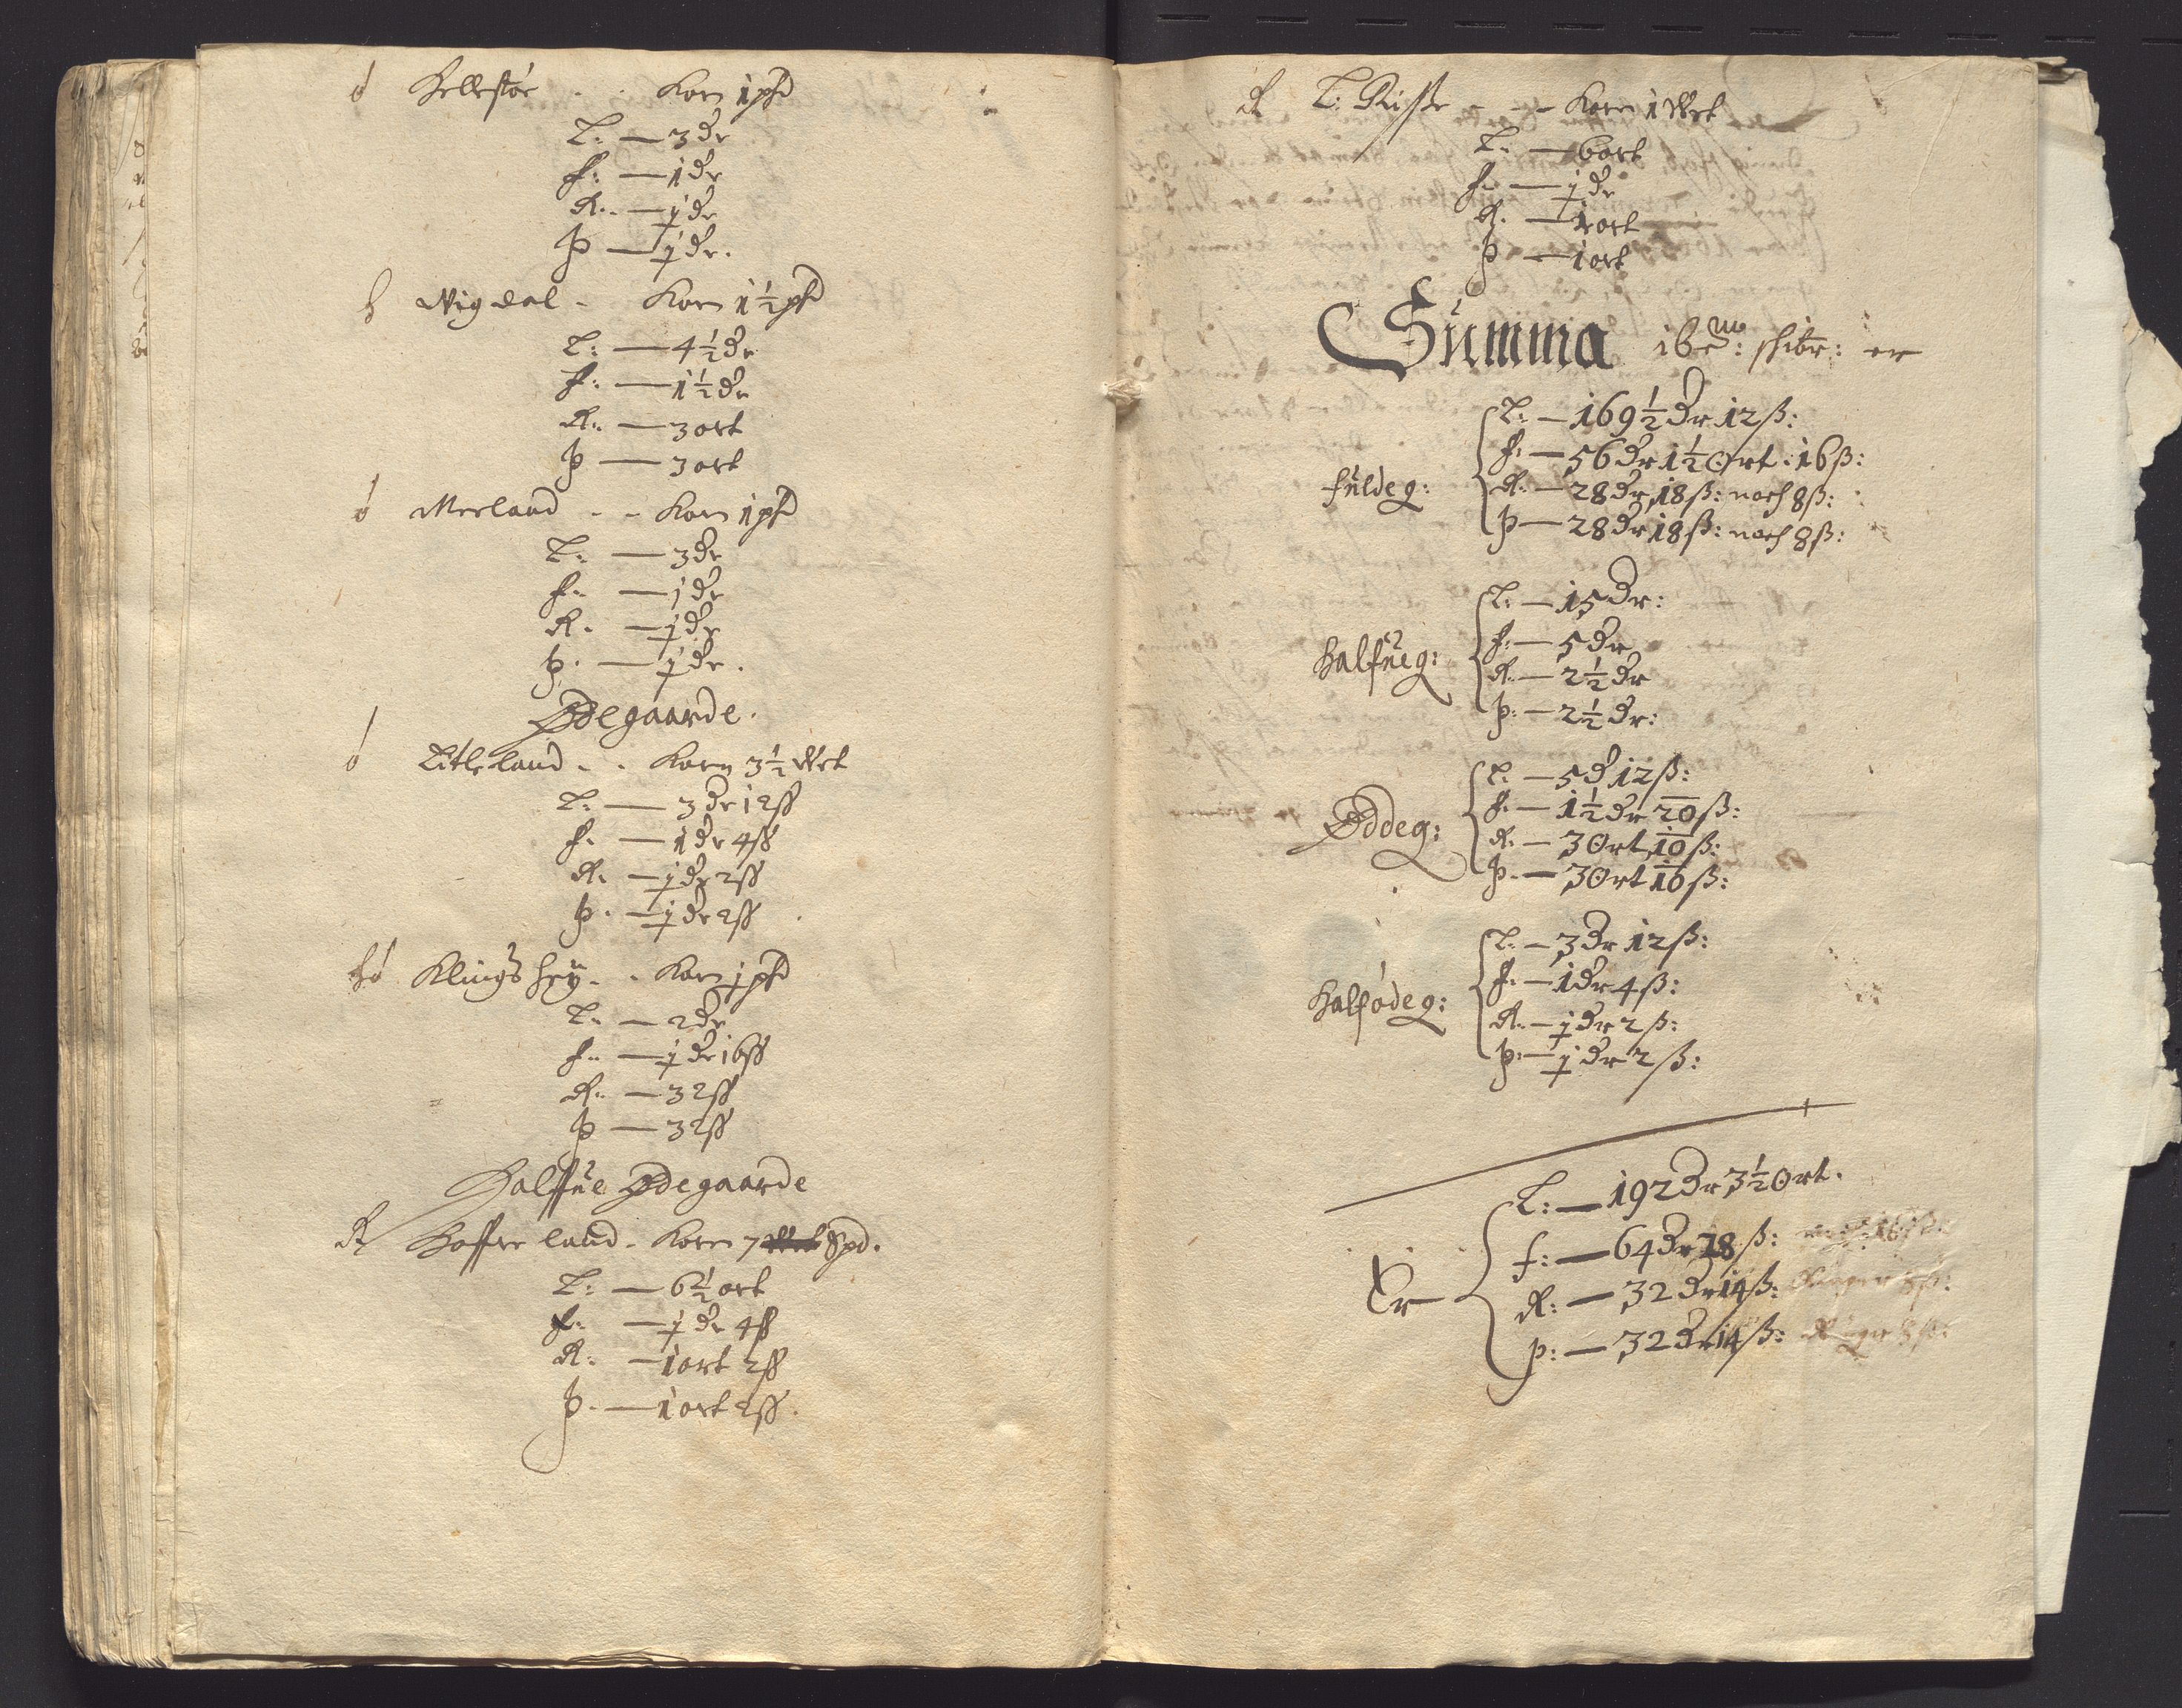 ó Hellestøe - - Korn 1 pd
T: — 3 dr
F: — 1 dr
R: — ½ dr
þ — ½ dr.
h Wigdal - Korn 1½ pd
T: — 4½ dr
F: — 1½ dr
R: — 3 ort
þ — 3 ort
ó Merland - - Korn 1 pd
T: — 3 dr
F: — 1 dr
R. — ½ dr
þ. — ½ dr.
Ødegaarde.
ó Titleland - - Korn 3½ Wet
T: — 3 dr 12 ß
F. — 1 dr 4 ß
R. — ½ dr 2 ß
þ. — ½ dr 2 ß
hó Klingshey - - Korn ½ pd
T: — 2 dr
F: — ½ dr 16 ß
R: — 32 ß
þ — 32 ß
Halffue Ødegaarde
R Hafferland - Korn 7 Spd.
T: — 6½ ort
F: — ½ dr 4 ß
R: — 1 ort 2 ß
þ. — 1 ort 2 ß.
R T: Risse - - - Korn 1 Wet
T: — 6 ort
F: — ½ dr
R. — 1 ort
þ — 1 ort
Summa shibr: er
T: — 169½ dr 12 ß:
F: — 56 dr 1½ Ort: 16 ß:
fuldeg: R: — 28 dr 18 ß: noch 8 ß:
þ — 28 dr 18 ß: noch 8 ß:
T: — 15 dr:
F: — 5 dr
halfueg: R: — 2½ dr
þ: — 2½ dr:
T: — 5 d 12 ß:
F: — 1½ dr 20 ß:
Øddeg: R: — 3 Ort 10 ß:
þ: — 3 Ort 10 ß:
T: — 3 dr 12 ß:
F: — 1 dr 4 ß:
halfødeg: R: — ½ dr 2 ß:
þ: — ½ dr 2 ß:
T: — 192 dr 3½ Ort.
F: — 64 dr 28 ß:
Er R: — 32 dr 14 ß:
þ: — 32 dr 14 ß: